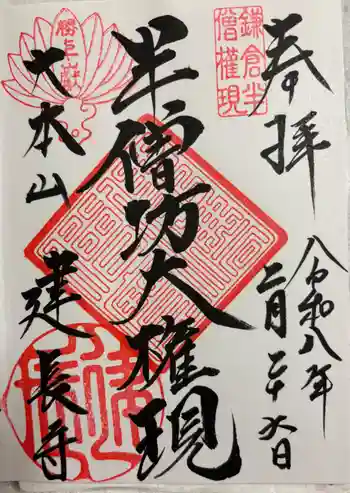 奉拝
令和八年
二月二十六日
鎌倉半
僧權現
半僧坊大権現
勝上嶽
大本山
建長寺